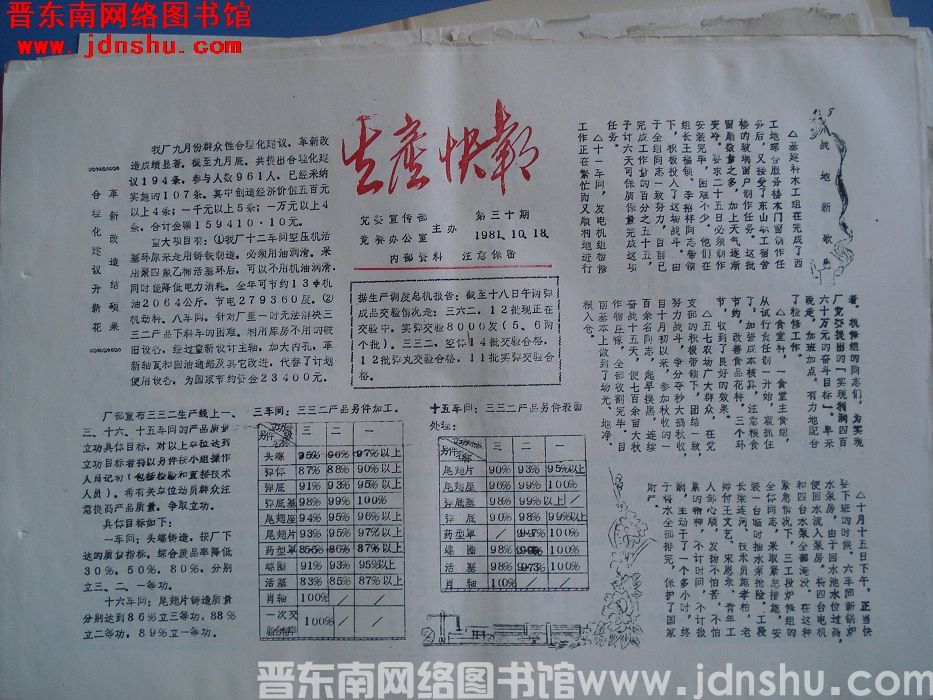 晋东南网络图书馆
www.jdnshu.com
生产快报
党委宣传部
党委办公室
主办
第三十期
1981.10.18.
内部资料 注意保密
合理化建议结硕果
革新改造开新花
我厂九月份群众性合理化建议、革新改
造成绩显著。截至九月底。共提出合理化建
议194条。参与人数961人。已经采纳
实施的107条。其中创造经济价值五百元
以上4条;一千元以上5条;一万元以上4
条。合计金额159410·10元。
重大项目有:①我厂十二车间空压机活
塞环原来是用铸铁制造。必须用油润滑。采
用聚四氟乙稀活塞环后。可以不用机油润滑,
同时能降低电力消耗。全年可节约13#机
油2064公斤。节电279360度。②
机动科、八车间。针对厂里一时无法解决三
三二产品下料车的困难。利用库房不用的破
旧设备。经过重新设计主轴。加大内孔。革
新轴瓦和回油通路及其它改进。代替了计划
使用设备。为国家节约资金23400元。
据生产调度总机报告:截至十八日午两弹
成品交验情况是:三六二、12批现正在
交验中。实弹交验8000发(5、6两
个批)。三三二、空体14批交验合格。
12批弹丸交验合格,11批实弹交验合
格。
厂部宣布三三二生产线上一、
三、十六、十五车间的产品质量
立功具体目标。对以上单位达到
立功目标者将以另件按小组操作
人员记功(包括检验和直接技术
人员)。希有关单位动员群众注
意提高产品质量。争取立功。
具体目标如下:
一车间:头螺铸造。按厂下
达的质量指标,综合废品率降低
30%、50%、80%、分别
立三、二、一等功。
十六车间:尾翅片铸造质量
分别达到86%立三等功、88%
立二等功,89%立一等功。
三车间:三三二产品另件加工。
另件 三 二 一
头螺 95% 96% 97%以上
弹体 87% 88% 90%以上
弹底 91% 93% 95%以上
弹底塞 98% 99% 100%
尾翅座 94% 95% 96%以上
尾翅片 93% 95% 97%以上
药型罩 85% 86% 87%以上
螺圈 91% 93% 95%以上
活塞 83% 85% 87%以上
肖轴 100% / /
一次交 100% / /
十五车间:三三二产品另件表面
处理:
另件 三 二 一
尾翅片 90% 93% 95%以上
尾翅座 96% 99% 100%
弹底塞 98% 99%以上 /
弹底 96% 98% 99%以上
药型罩 / 100%
螺圈 98% 100%
活塞 98% 100%
肖轴 100% / /
战地新歌
△基建科木工组在完成了西
工地综合服务楼木门窗制作任
务后,又接受了东山职工宿舍
楼的玻璃窗户制作任务。这批
窗扇数量之多,加上天气逐渐
变冷。要求二十五日必须制作
安装完毕。困难不少,他们在
组长王福锁、李裕祥同志带领
下。积极投入了这场战斗。由
于全组同志一致努力。目前已
完成工作量的百分之五十五,
予计六天可保质保量完成这项
△十一车间,发电机组检修
工作正在繁忙而又顺利地进行
着。检修组的同志们,为实现
厂党委提出的“实现利润四百
六十万元的奋斗目标”。早采
晚走,加班加点,有力地配合
了检修工作。
△食堂科,一食堂主食组,
从试行责任制一开始,就抓住
了加强成本核算,注意粮食
节约,改善食品花样,三个环
节,收到了良好的效果。
△五七农场广大群众,在党
支部的积极带领下,团结一致,
努力战斗,争分夺秒大搞秋收,
自十月初以来,参加秋收的一
百余名同志,起早摸黑,连续
奋战十五天。使七百余亩大秋
作物庄稼,全部收割完毕。目
前基本上做到了场光、地净、
粮入仓。
△十月十五日下午,正当快
要下班的时候。六车间新锅炉
水泵房,由于回水池水位过高,
使回水流入泵房,将四台电机
和四台水泵全部淹没。在这种
紧急情况下,三工段炉修组的
全体同志。采取紧急措施,安
装一台临时抽水泵抢险。工段
长梁连河、技术员施孝柏,老
师付王文艺、宋思永、青年工
人剑心硕。发扬不怕苦,不怕
累的精神,不计时间,不计报
酬,主动干了一个多小时。终
于将水全部排完。保护了国家
财产。
晋东南网络图书馆 www.jdnshu.com